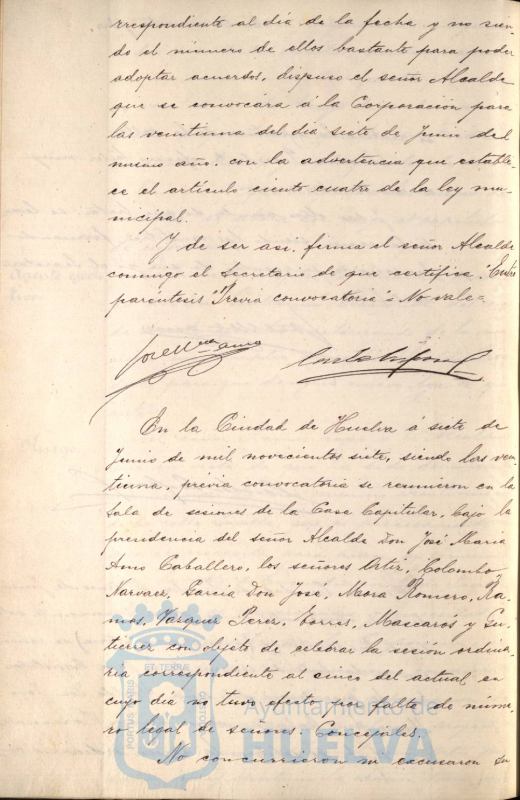 rrespondiente al dia de la fecha y no sien-
do el número de ellos bastante para poder
adoptar acuerdos, dispuso el señor Alcalde
que se convocára á la Corporación para
las veintiuna del dia siete de Junio del
mismo año, con la advertencia que estable-
ce el articulo ciento cuatro de la ley mu-
nicipal.
Y de ser asi, firma el señor Alcalde
conmigo el Secretario de que certifico. "Entre
parentesis "Previa convocatoria" = No vale =
En la Ciudad de Huelva á siete de
Junio de mil novecientos siete, siendo las vein-
tiuna, previa convocatoria se reunieron en la
Sala de sesiones de la Casa Capitular, bajo la
presidencia del señor Alcalde Don José Maria
Amo Caballero, los señores Ortiz, Colombo,
Narvaez, Garcia Don José, Mora Romero, Ra-
mos, Vazquez Perez, Torres, Mascarós y Gu-
tierrez con objeto de celebrar la sesión ordina-
ria correspondiente al cinco del actual, en
cuyo dia no tuvo efecto por falta de núme-
ro legal de señores Concejales.
No concurrieron ni excusaron su
PORTUS MARIS ET TERRÆ CUSTODIA
Ayuntamiento de
HUELVA